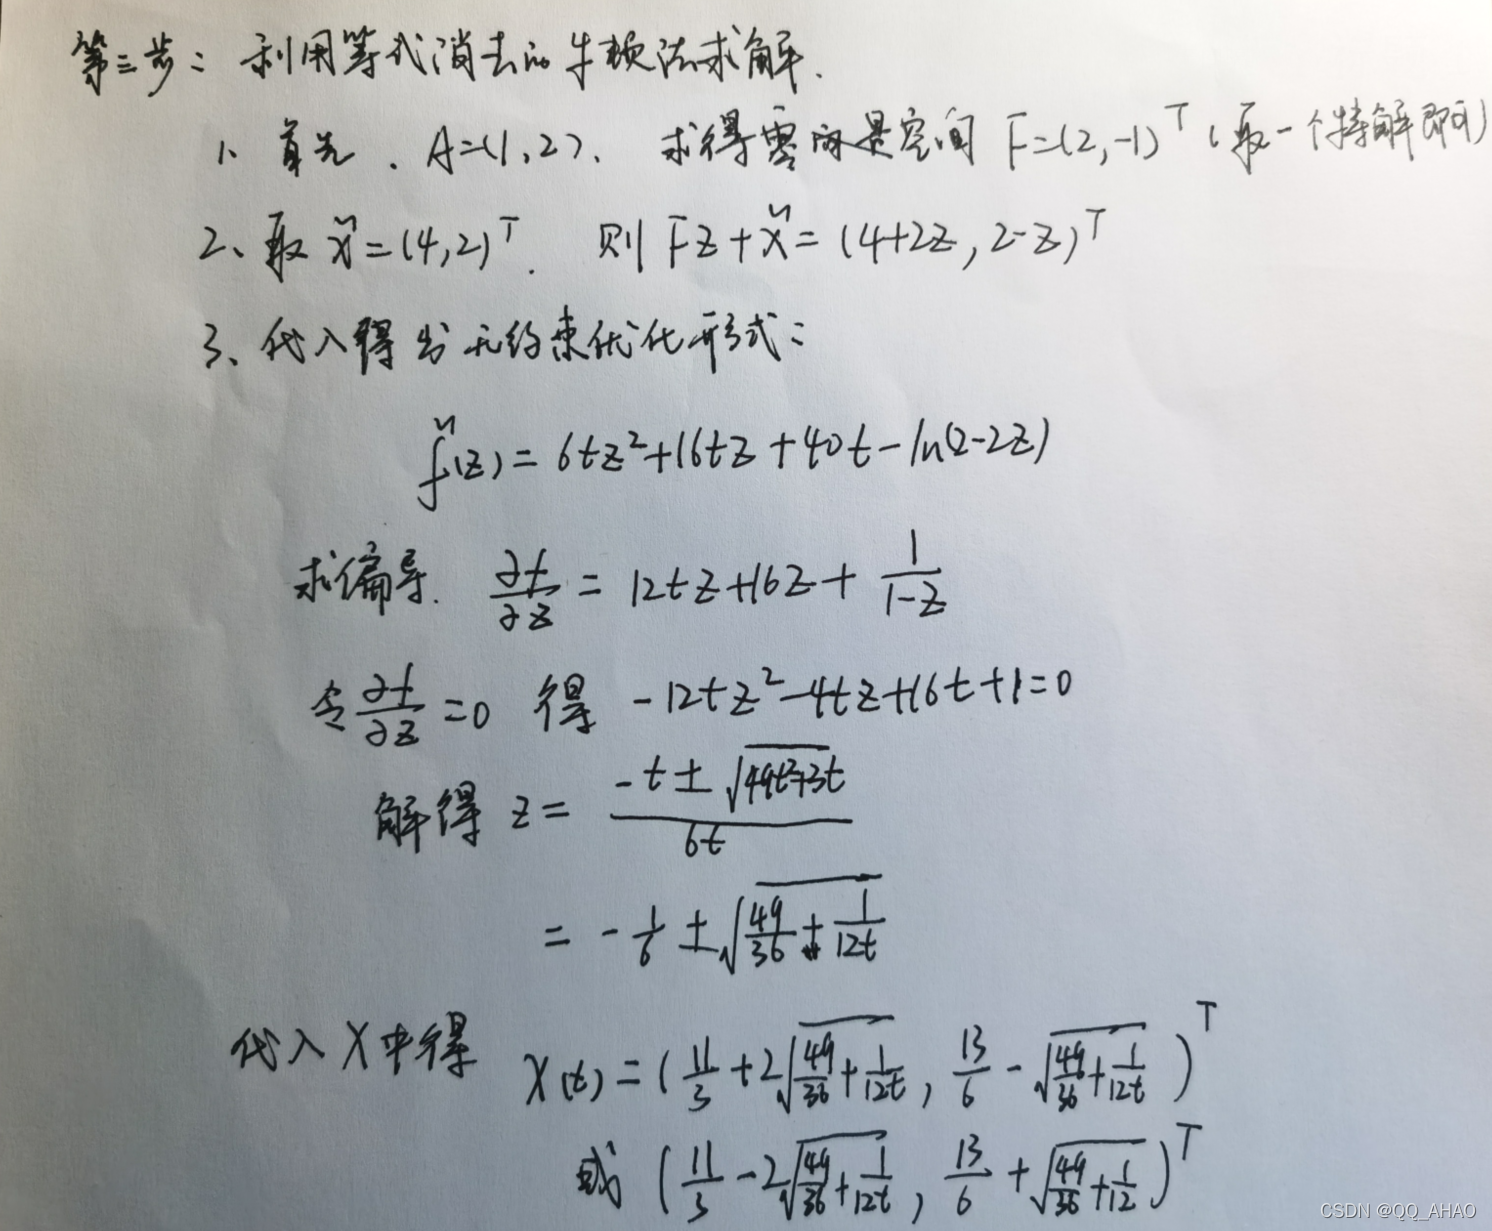 第三步：利用等式消去的牛顿法求解.
1、首先、A=(1,2)、求得零向量空间 F=(2,-1)ᵀ（取一个特解即可）
2、取 x̃=(4,2)ᵀ. 则 Fz+x̃=(4+2z, 2-z)ᵀ
3、代入得出无约束优化形式：
f̃(z)=6tz²+16tz+40t-ln(2-2z)
求偏导. ∂f/∂z = 12tz+16z+ 1/(1-z)
令 ∂f/∂z =0 得 -12tz²-4tz+16t+1=0
解得 z= (-t±√(49t²+3t))/(6t)
= -1/6 ±√(49/36+1/(12t))
代入X中得 X(t)=(11/3+2√(49/36+1/(12t)), 13/6-√(49/36+1/(12t)))ᵀ
或 (11/3-2√(49/36+1/(12t)), 13/6+√(49/36+1/12))ᵀ
CSDN @QQ_AHAO